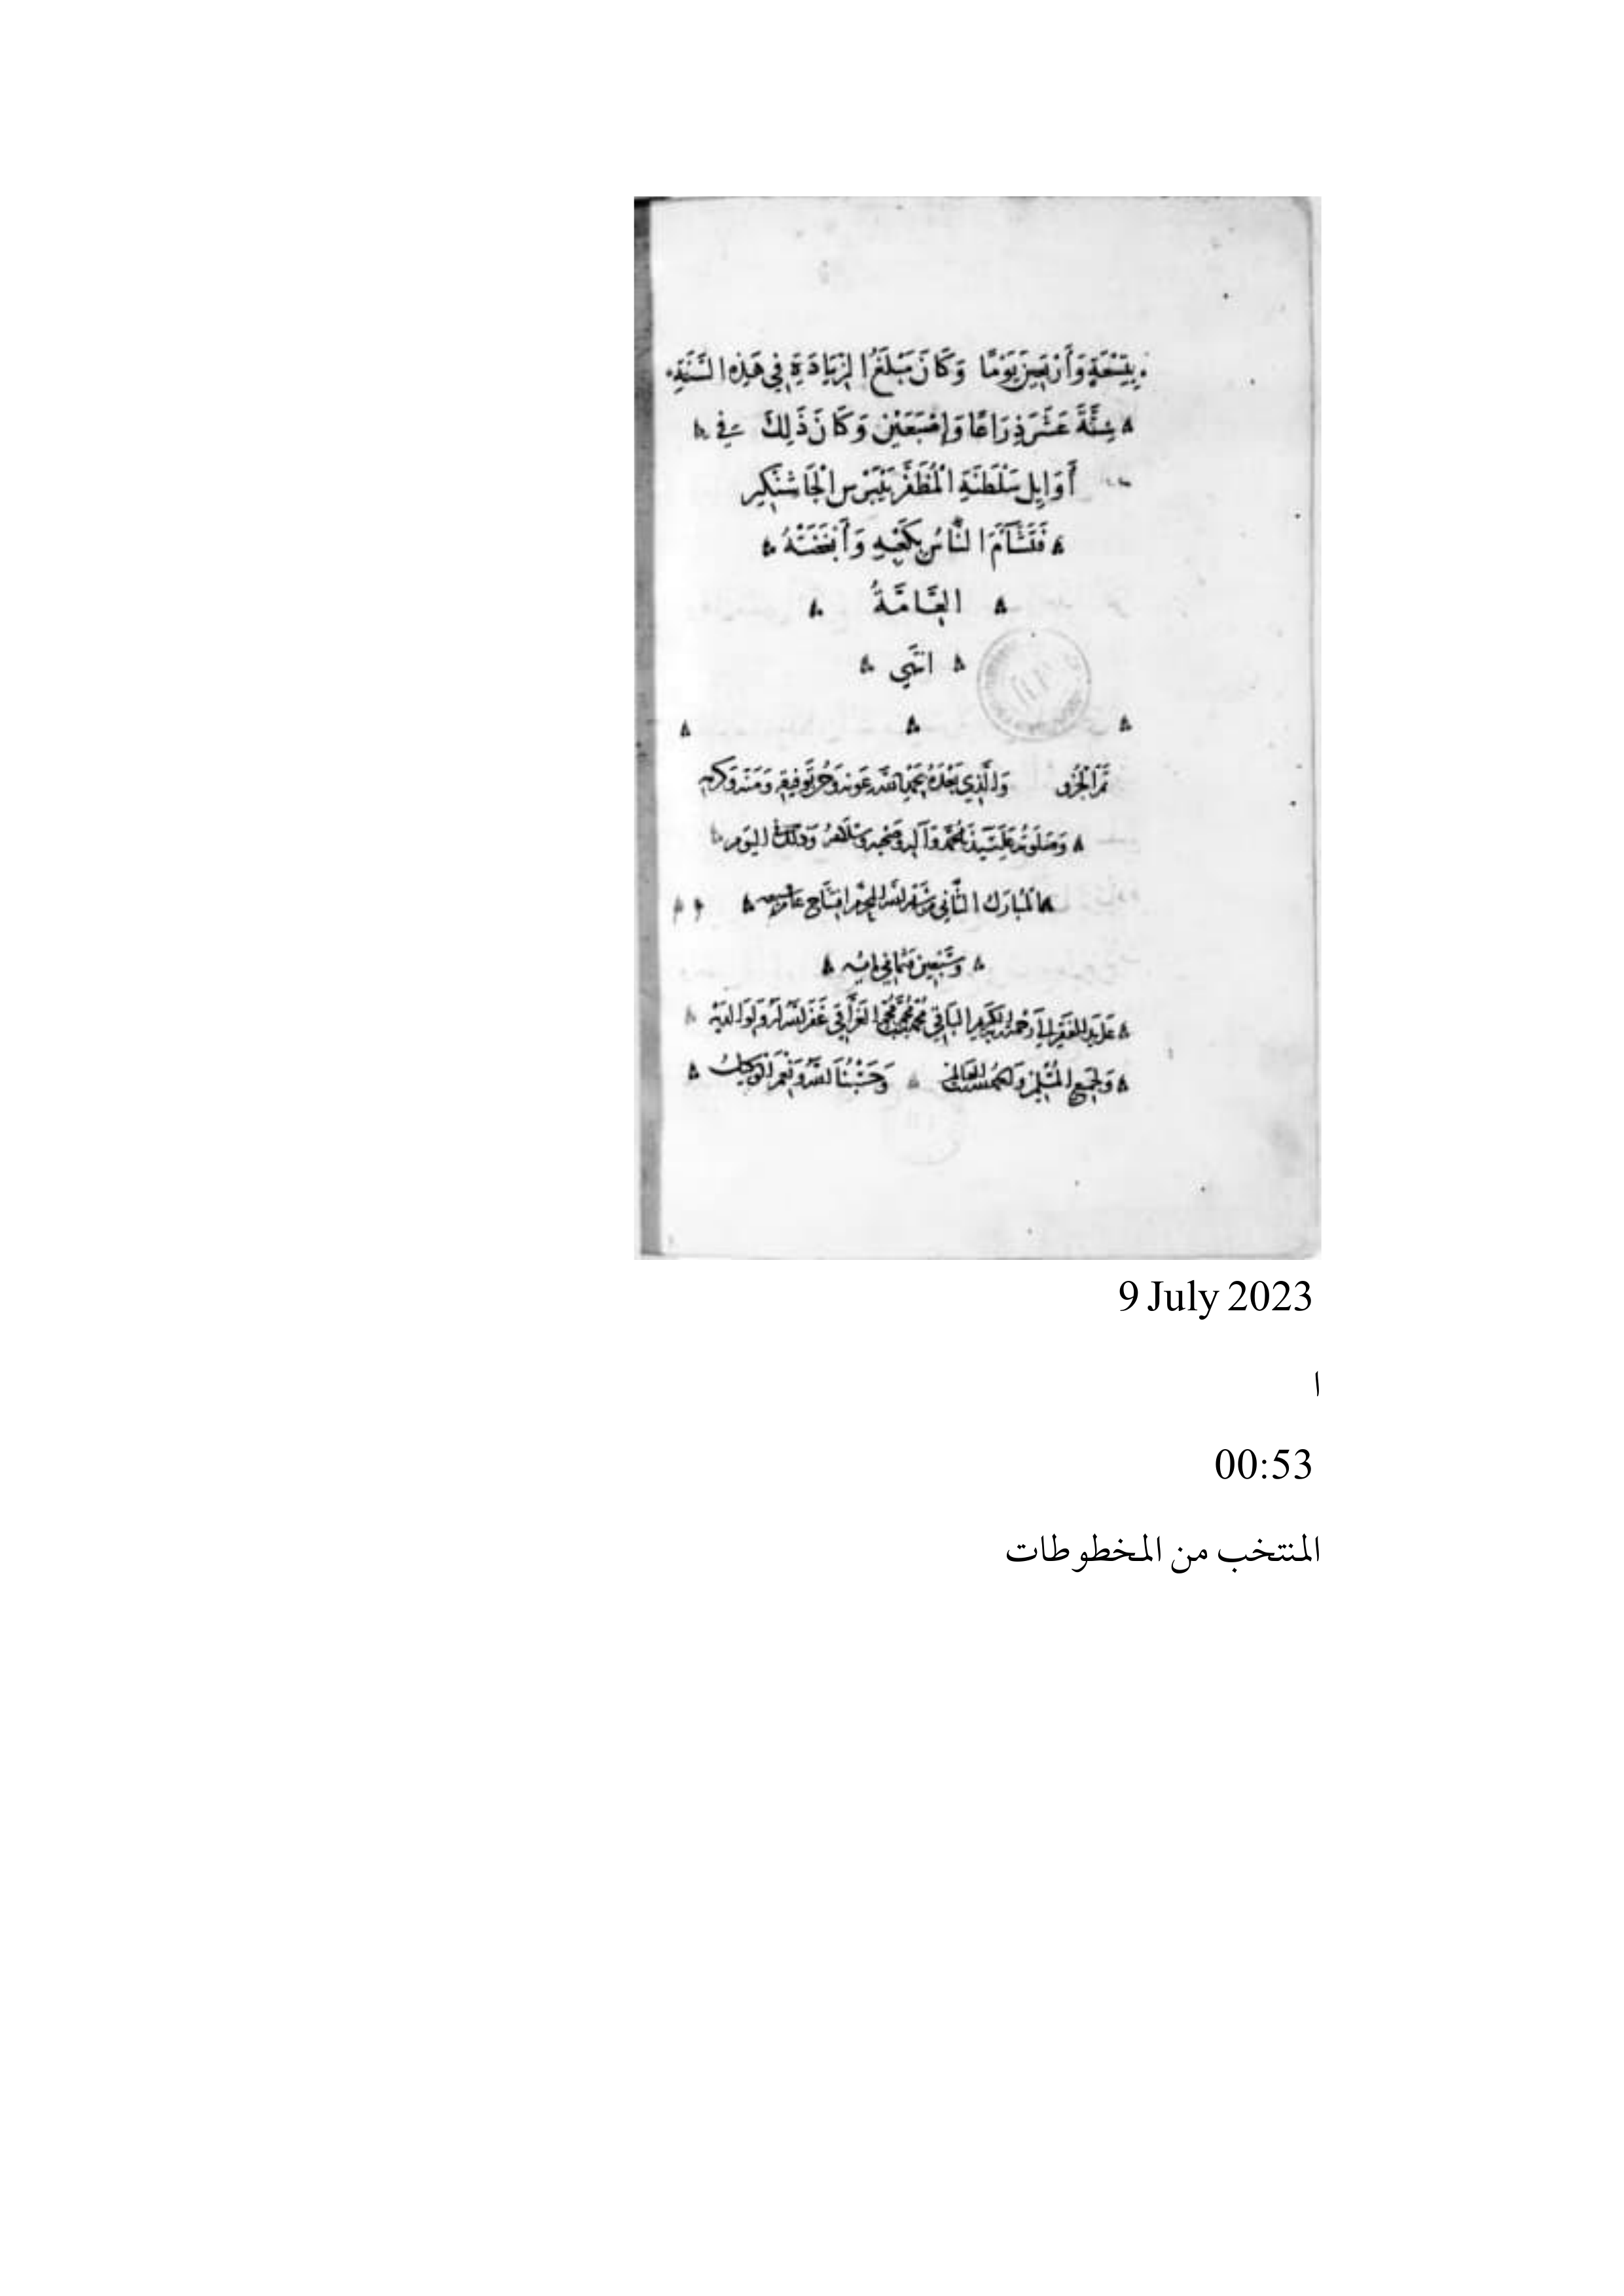 بِتِسْعَةٍ وَأَرْبَعِينَ يَوْمًا وَكَانَ مَبْلَغُ الزِيَادَةِ فِي هَذِهِ السَّنَةِ
سِتَّةَ عَشَرَ ذِرَاعًا وَإِصْبَعَيْنِ وَكَانَ ذَلِكَ فِي
أَوَايِلِ سَلْطَنَةِ الْمُظَفَّرِ بَيْبَرْسِ الْجَاشْنَكِيرِ
فَتَشَآءَمَ النَّاسُ بِكَعْبِهِ وَأَبْغَضَتْهُ
العَامَّةُ
انتهى
تَمَّ الْجُزْء وَالَّذِي بَعْدَهُ بِحَمْدِ اللَّه عَونه وَحُسن تَوفِيقِهِ وَمَنّه وَكَرَمِهِ
وَصَلَوتُه عَلَى سَيِّدنَا مُحَمَّد وَآلِهِ وَصَحْبِهِ وَسَلَامهُ وَذَلِكَ اليَوم
المُبَارَك الثَّانِي شهر اللَّه المحرّم افتتَاح عَام
وَسَبْعِين وَثمانِي مايه
عَلَى يَدِ الفَقِير إلى رَحْمَة ربه الكَرِيمِ البَاقِي مُحَمَّد بن مُحَمَّد بن مُحَمَّد غَفَرَ اللَّه لَهُ وَلِوَالِدَيْهِ
وَلِجَمِيع المُسْلِمِين وَالحَمْدُ للَّه رَبّ العَالَمِين وَحَسْبُنَا اللَّه وَنِعْمَ الْوَكِيلُ
9 July 2023
ا
00:53
المنتخب من المخطوطات